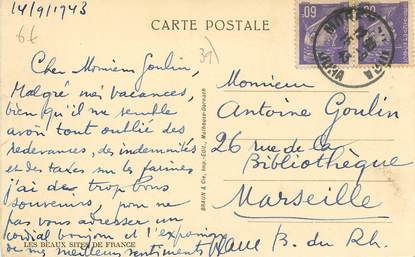 14/9/1943
CARTE POSTALE
6€
Cher Monsieur Goulin,
Malgré mes vacances,
bien qu'il me semble
avoir tout oublié des
redevances, des indemnités
et des taxes sur les farines
j'ai de trop bons
souvenirs, pour ne
pas vous adresser un
cordial bonjour et l'expression
de mes meilleurs sentiments
LES BEAUX SITES DE FRANCE
BRAUN & Cie, Imp.-Édit., Mulhouse-Dornach
Monsieur
Antoine Goulin
26 rue de la
Bibliothèque
Marseille
B. du Rh.